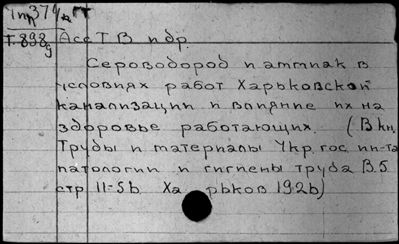 Т.898
Асс Т В и др.
Сероводород и аммиак в
условиях работ Харьковской
канализации и влияние их на
здоровье работающих. (В кн.
Труды и материалы Укр. гос. ин-та
патологии и гигиены труда В.5
стр 11-56 Ха рьков 1926)